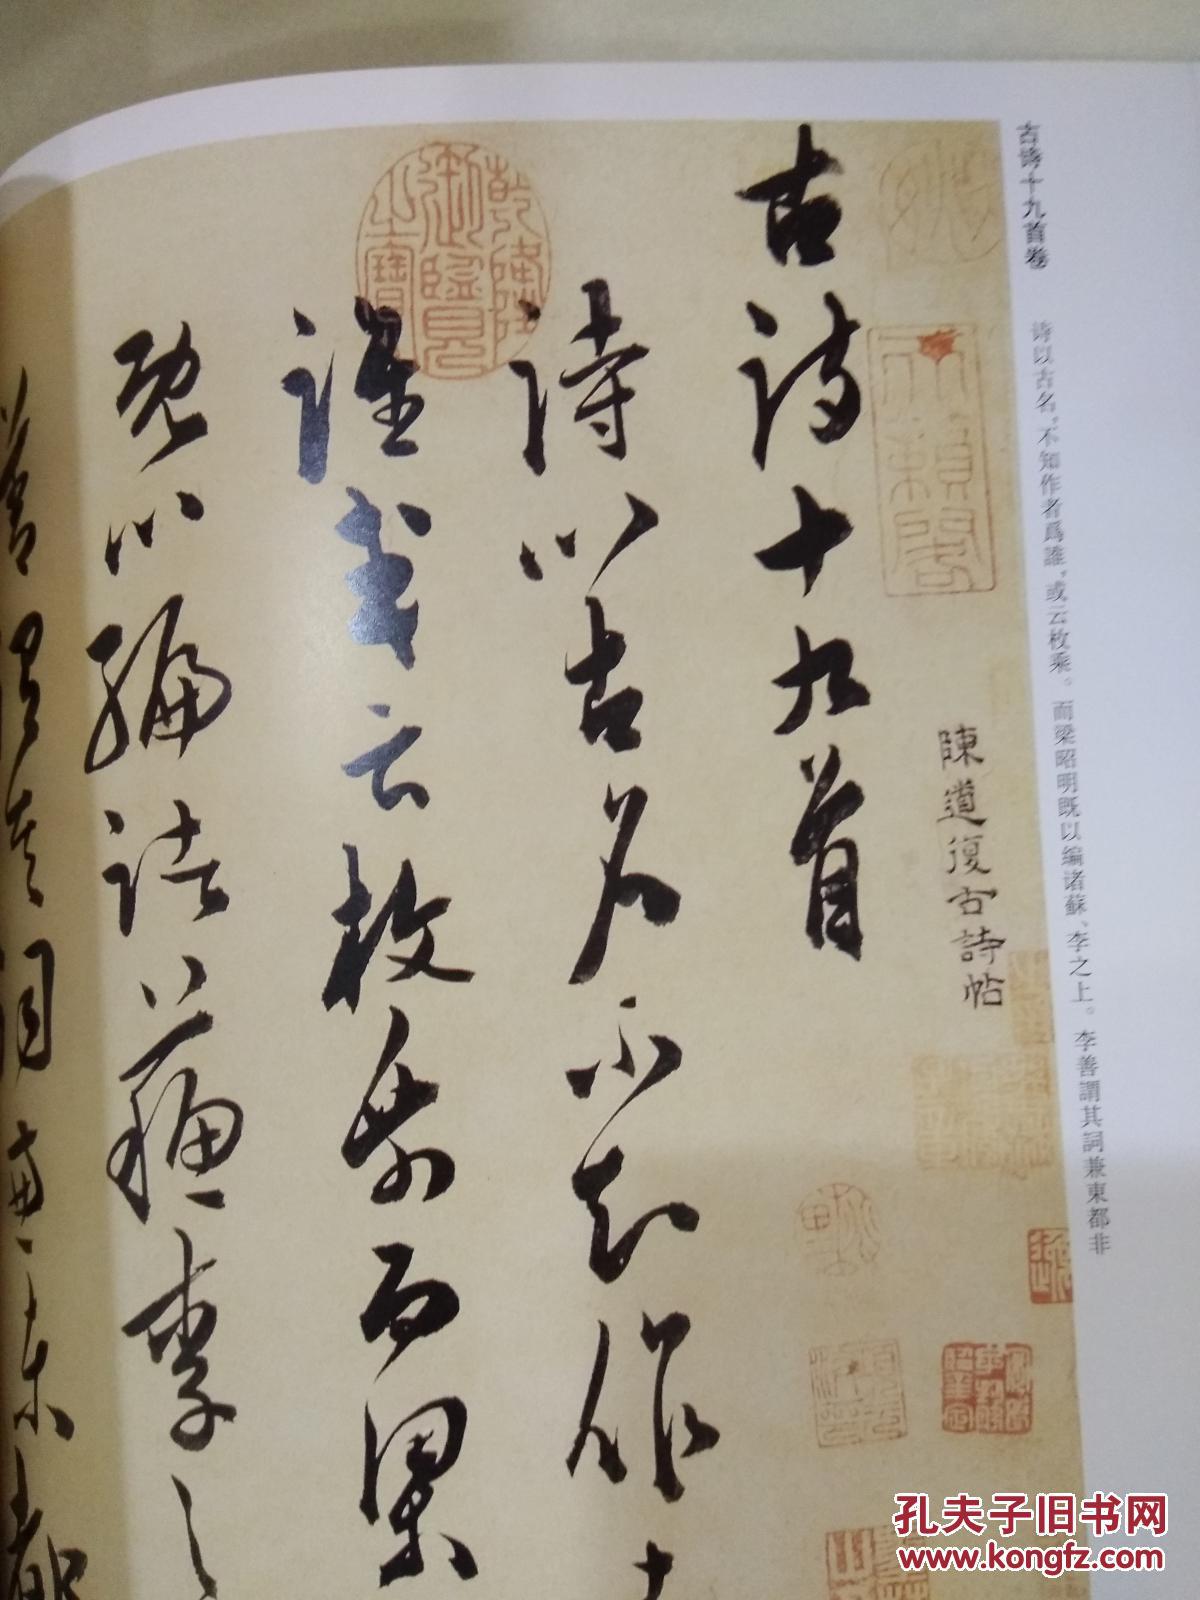 古诗十九首卷
诗以古名,不知作者爲誰,或云枚乘。而梁昭明既以编诸蘇、李之上。李善謂其詞兼東都非
陳道復古詩帖
古詩十九首
詩以古名不知作
誰或云枚乘而梁
既以編諸蘇李之
善謂其詞兼東都
乾隆御覽之寶
孔夫子旧书网
www.kongfz.com